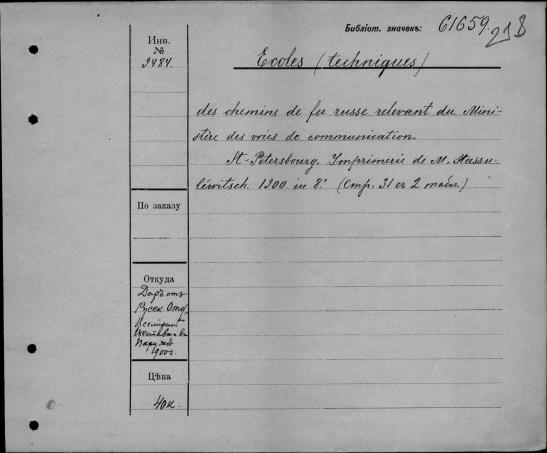 Библіот. значекъ: 61659.
Инв.
№
9484.
Ecoles (techniques)
des chemins de fer russe relevant du Mini-
stère des voies de communication.
St-Petersbourg. Imprimerie de M. Stassu-
léwitsch. 1900. in 8.° (Стр. 31 съ 2 табл.)
По заказу
Откуда
Даръ отъ
Русск. Отд.
въ
Париже
1900 г.
Цѣна
40 к.